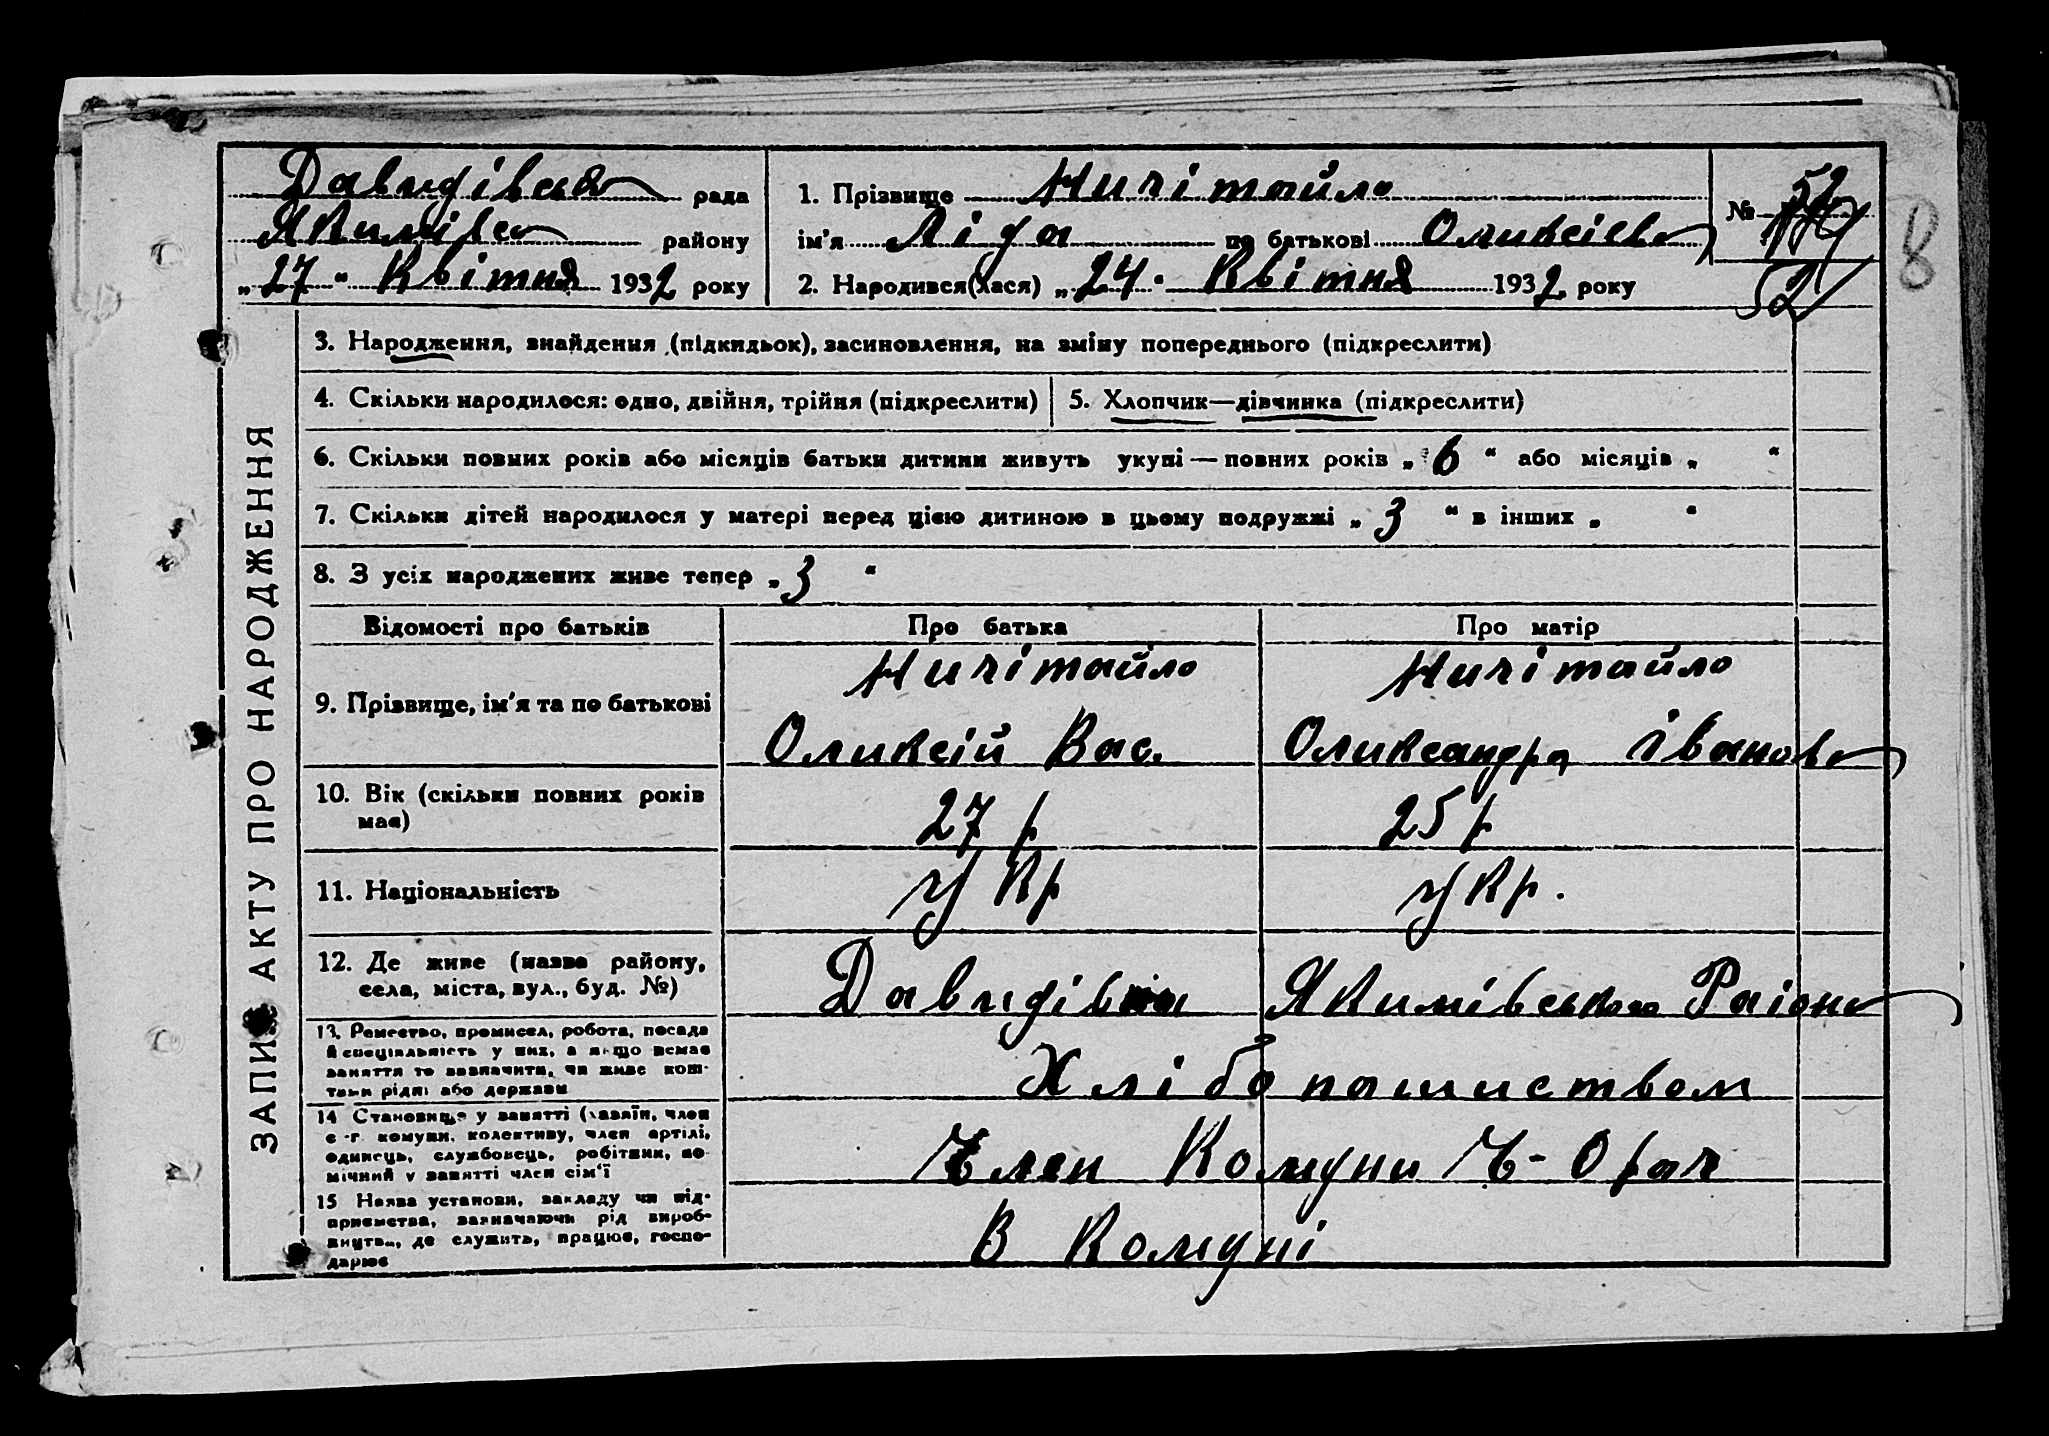 Давидівська рада
Якимівсь району
„27“ Квітня 1932 року
1. Прізвище Ничітайло
ім'я Ліда по батькові Оликсієв
2. Народився(лася) „24“ Квітня 1932 року
№ 52
52
8
ЗАПИС АКТУ ПРО НАРОДЖЕННЯ
3. Народження, знайдення (підкидьок), засиновлення, на зміну попереднього (підкреслити)
4. Скільки народилося: одно, двійня, трійня (підкреслити)
5. Хлопчик—дівчинка (підкреслити)
6. Скільки повних років або місяців батьки дитини живуть укупі—повних років „6“ або місяців „ “
7. Скільки дітей народилося у матері перед цією дитиною в цьому подружжі „3“ в інших „ “
8. З усіх народжених живе тепер „3“
Відомості про батьків
Про батька
Про матір
9. Прізвище, ім'я та по батькові
Ничітайло
Оликсій Вас.
Ничітайло
Оликсандра Іванов
10. Вік (скільки повних років
має)
27 р
25 р
11. Національність
Укр
Укр.
12. Де живе (назва району,
села, міста, вул., буд. №)
Давидівка Якимівського Раіону
13. Ремество, промисел, робота, посада
й спеціальність у них, а якщо немає
заняття то зазначити, чи живе кош-
тами рідні або держави
Хлібопашиством
14 Становище у занятті (хазяїн, член
с.-г. комуни, колективу, член артілі,
одинець, службовець, робітник, по-
мічний у занятті член сім'ї
Член Комуни Ч-Орач
15 Назва установи, закладу чи під-
приємства, зазначаючи рід вироб-
ництва, де служить, працює, госпо-
дарює
В Комуні